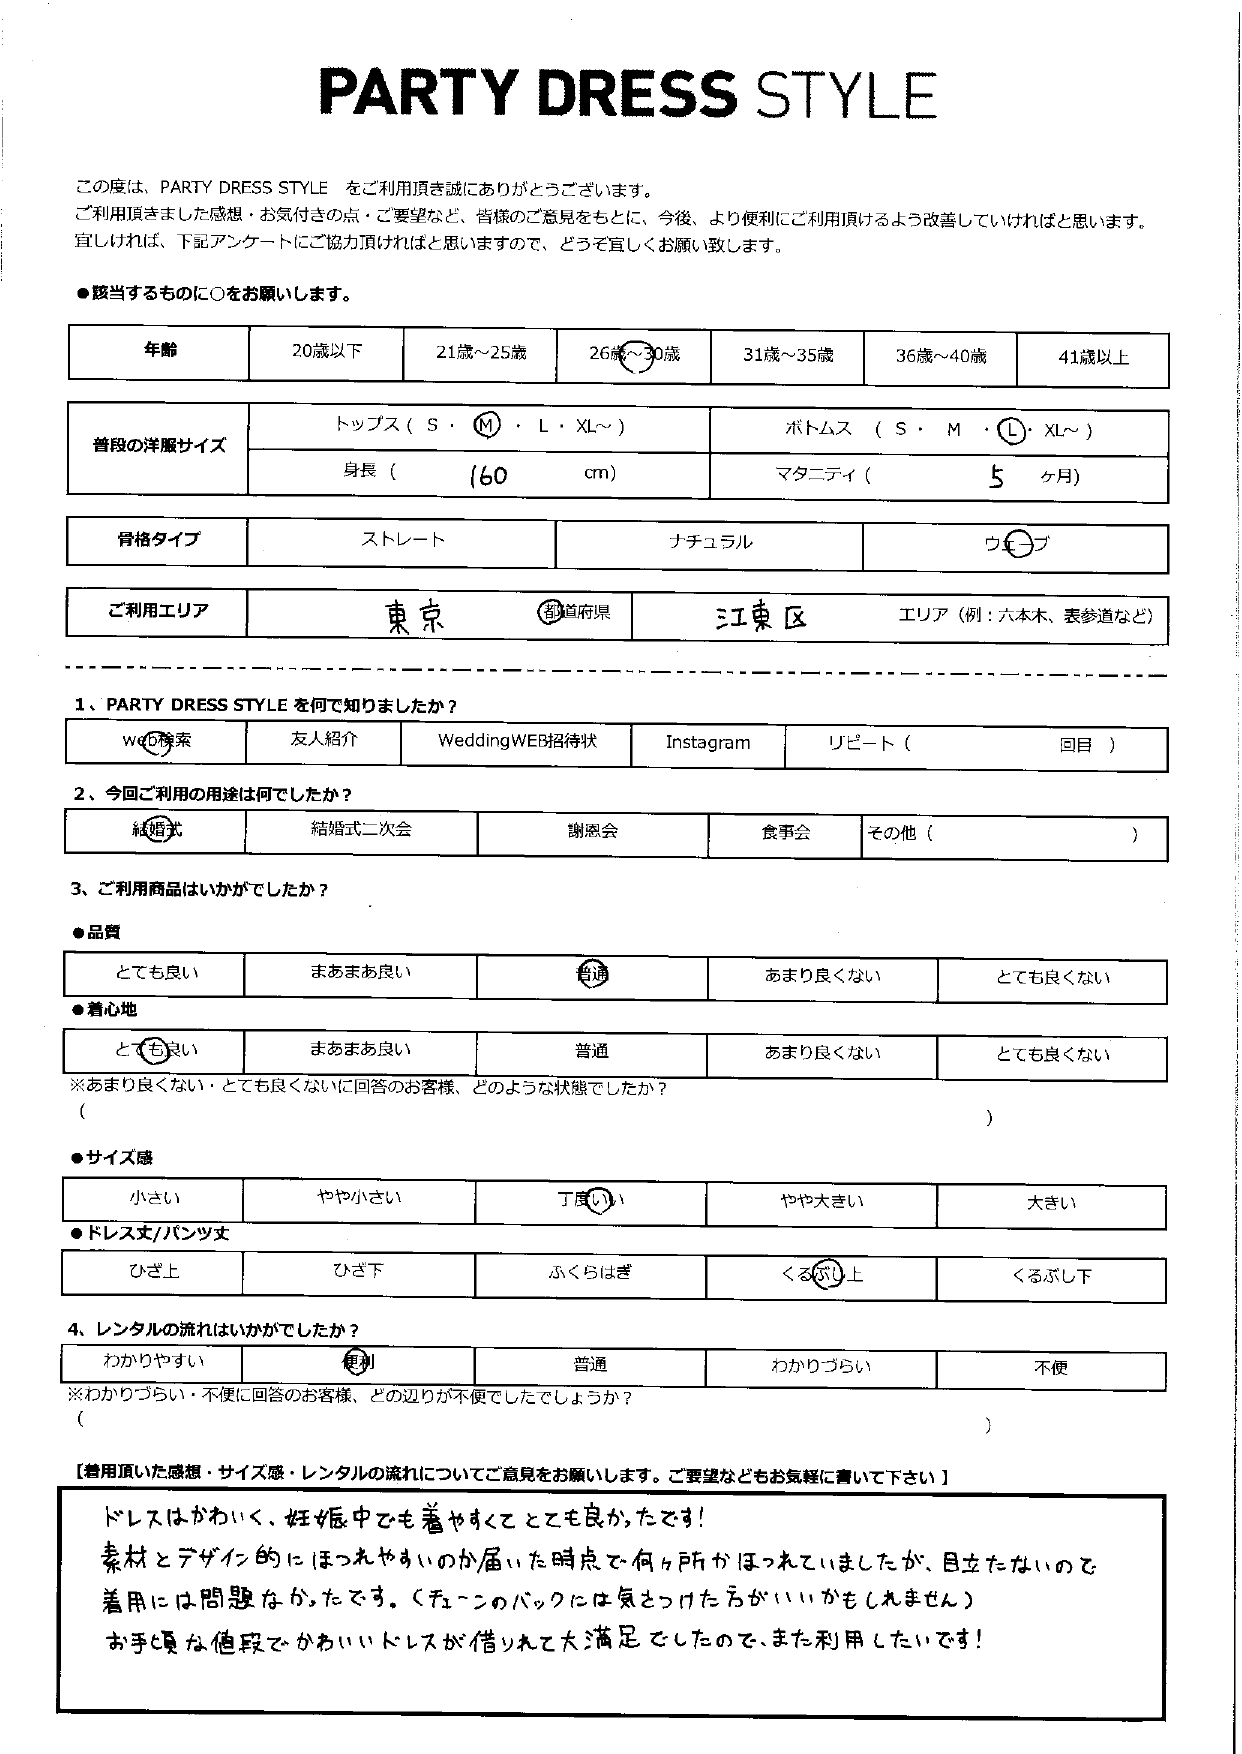 PARTY DRESS STYLE
この度は、PARTY DRESS STYLE をご利用頂き誠にありがとうございます。
ご利用頂きました感想・お気付きの点・ご要望など、皆様のご意見をもとに、今後、より便利にご利用頂けるよう改善していければと思います。
宜しければ、下記アンケートにご協力頂ければと思いますので、どうぞ宜しくお願い致します。
●該当するものに○をお願いします。
年齢 20歳以下 21歳～25歳 26歳～30歳 31歳～35歳 36歳～40歳 41歳以上
普段の洋服サイズ トップス ( S ・ M ・ L ・ XL～ ) ボトムス ( S ・ M ・ L ・ XL～ )
身長 ( 160 cm) マタニティ ( 5 ヶ月)
骨格タイプ ストレート ナチュラル ウェーブ
ご利用エリア 東京 都道府県 江東区 エリア（例：六本木、表参道など）
1、PARTY DRESS STYLE を何で知りましたか？
web検索 友人紹介 WeddingWEB招待状 Instagram リピート ( 回目 )
2、今回ご利用の用途は何でしたか？
結婚式 結婚式二次会 謝恩会 食事会 その他 ( )
3、ご利用商品はいかがでしたか？
●品質
とても良い まあまあ良い 普通 あまり良くない とても良くない
●着心地
とても良い まあまあ良い 普通 あまり良くない とても良くない
※あまり良くない・とても良くないに回答のお客様、どのような状態でしたか？
( )
●サイズ感
小さい やや小さい 丁度いい やや大きい 大きい
●ドレス丈/パンツ丈
ひざ上 ひざ下 ふくらはぎ くるぶし上 くるぶし下
4、レンタルの流れはいかがでしたか？
わかりやすい 便利 普通 わかりづらい 不便
※わかりづらい・不便に回答のお客様、どの辺りが不便でしたでしょうか？
( )
【着用頂いた感想・サイズ感・レンタルの流れについてご意見をお願いします。ご要望などもお気軽に書いて下さい 】
ドレスはかわいく、妊娠中でも着やすくてとても良かったです！
素材とデザイン的にほつれやすいのか届いた時点で何ヶ所かほつれていましたが、目立たないので
着用には問題なかったです。（チェーンのバックには気をつけた方がいいかもしれません）
お手頃な値段でかわいいドレスが借りれて大満足でしたので、また利用したいです！